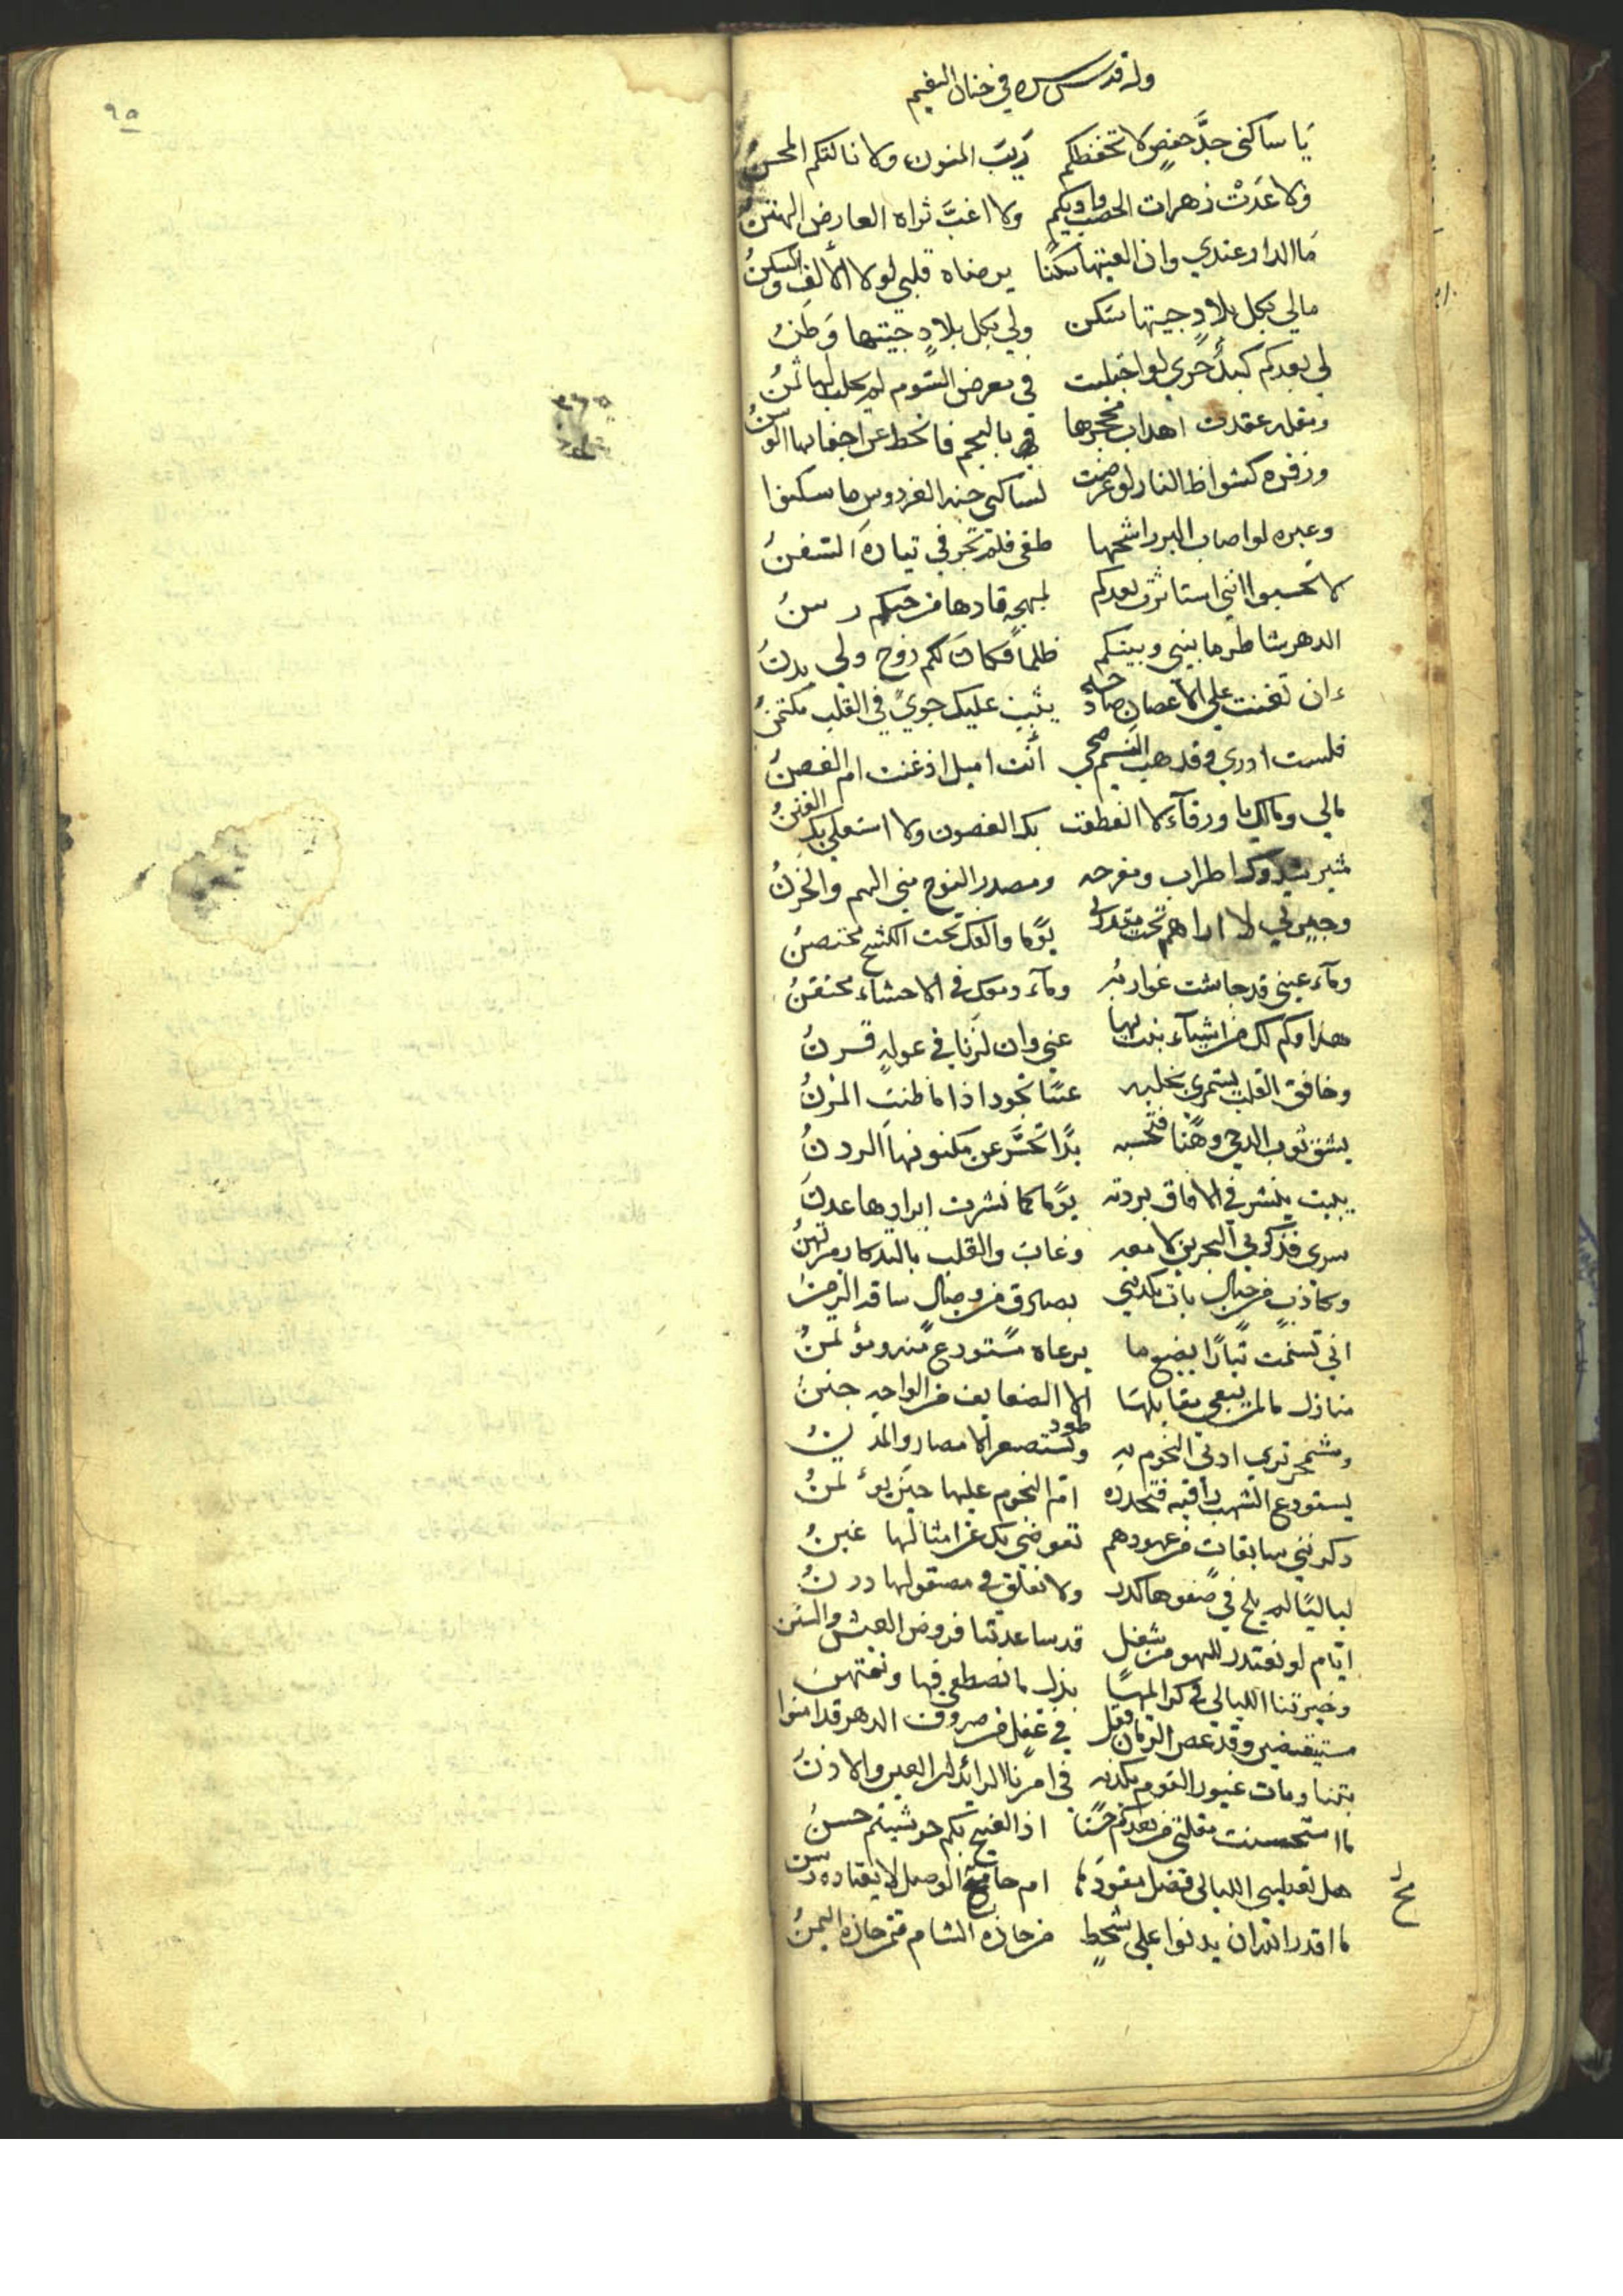 وله قدس سره في جنان النعيم
يَا ساكني جدَّ حفصٍ لا تخفطكم ريبَ المنون ولا نالتكم المحنُ
ولا عَدَتْ زهرات الخصب واديكم ولا اغبَّ ثراه العارض الهتنُ
مَا الدار عندي وان الفيتها سكنًا يرضاه قلبي لولا الألف والسكنُ
مالي بكل بلادٍ جيتها سَكن ولي بكل بلادٍ جيتها وَطنُ
لي بعدكم كبدٌ حرى لو اجتلبت في معرض السَّوم لم يحلب لها ثمنُ
ومقله عقدت اهداب محجرها بالنجم فانحط عن اجفانها الوسنُ
وزفره كشواظ النار لو عرضت لساكني جنه الفردوس ما سكنوا
وعبره لو اصاب البر اشحمها طغى فلم تجر في تياره السّفنُ
لا تحسبوا انني استاثرت بعدكم لمهجه قادها من حبكم رسنُ
الدهر شاطر ما بيني وبينكم ظلمًا فكان لكم روح ولي بدنُ
ءان تغنت على الاغصان صادحه يثبت عليك جوىً في القلب مكتمنُ
فلست ادري وقد هب النسيم ضحى أنت اميل اذ غنت ام الغصنُ
مالي ومالك يا ورقآء لا انعطفت بك الغصون ولا استعلى بك الفننُ
مثير شدوك اطراب ومفرحه ومصدر النوح مني الهم والحزنُ
وجيرتي لا اراهم تحت مقدرتي يومًا والفك تحت الكشح محتضنُ
ومآء عيني قد جاشت غواربه ومآء دمعك في الاحشاء محتقنُ
هذا وكم لك من اشيآء بنت بها عني وان لزّنا في عوله قرنُ
وخافق القلب يستمري بخلبه عينًا تجود اذا ما ظنت المزنُ
يشق ثوب الدجى وهنًا فتحسبه يدًا تحسَّر عن مكنونها الردنُ
يبيت ينشر في الافاق بردته يومًا كما نشرت ابرادها عدنُ
سرى فذكرني البحرين لامعه وغاب والقلب بالتذكار مرتهنُ
وكاذب من خيال بات يكذبني بصادق من وصال ساقه الزمنُ
اني تسنمت تيارًا يضيع ما يرعاه مستودع منه ومؤتمنُ
منازل مالمن يبغي مقابلها الا الضعايف من الواحه جننُ
ومشمخر ترى ادنى النجوم به وتستصغر الامصار والمدنُ
يستودع الشهب راقيه فتحدره ام النجوم عليها حين يؤتمنُ
ذكرنني سابقات من عهودهم تعوضي بك عن امثالها غبنُ
لياليًا لم يلج في صفوها كدر ولا تعلق في مصقولها درنُ
ايام لو نعتدر للهو من شغل قد ساعدتنا فروض العيش والسنن
وخيرتنا الليالي في كرائمها بذل ما نصطفي فيها ونمتهن
مستيقضين وقد غض الزمان فقل في غفل من صروف الدهر قد امنوا
بتنا وبات غيور القوم يكذبه في امرنا الرائدان العين والاذنُ
ما استحسنت مقلتي من بعدكم حسنًا اذ القبيح بكم حوشيتم حسنُ
هل تعديني الليالي فضل مقودها ام جامح الوصل لا يقتاده رسن
ما اقدر الله ان يدنوا على شحطٍ من جاره الشام ممن جاره اليمنُ
٩٥